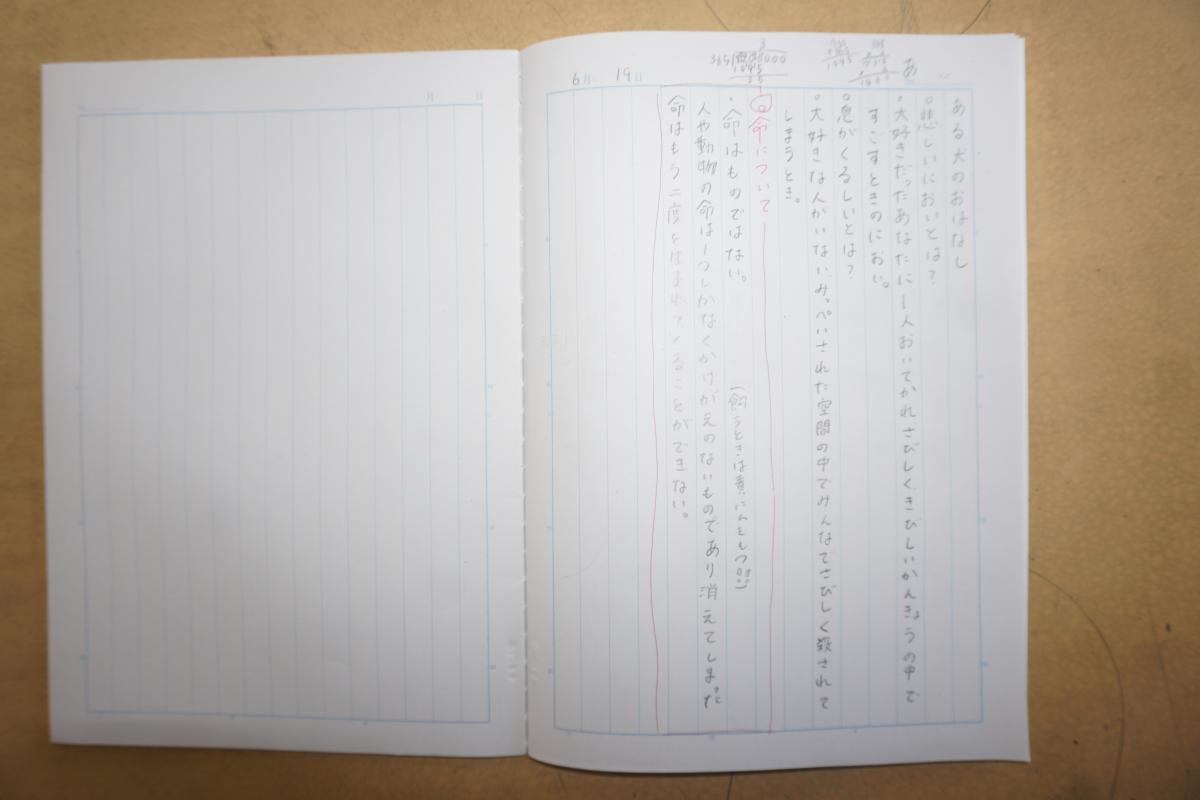 6月 19日
3
365
1045
あ
ある犬のおはなし
。悲しいにおいとは？
・大好きだったあなたに一人おいてかれ、さびしく、きびしいかんきょうの中で
すごすときのにおい。
。息がくるしいとは？
。大好きな人がいない、みっぺいされた空間の中でみんなでさびしく殺されて
しまうとき。
◎命について
・命はものではない。
(飼うときは責にんをもつ
人や動物の命は一つしかなくかけがえのないものであり消えてしまった
命はもう二度と生まれることができない。
月 日